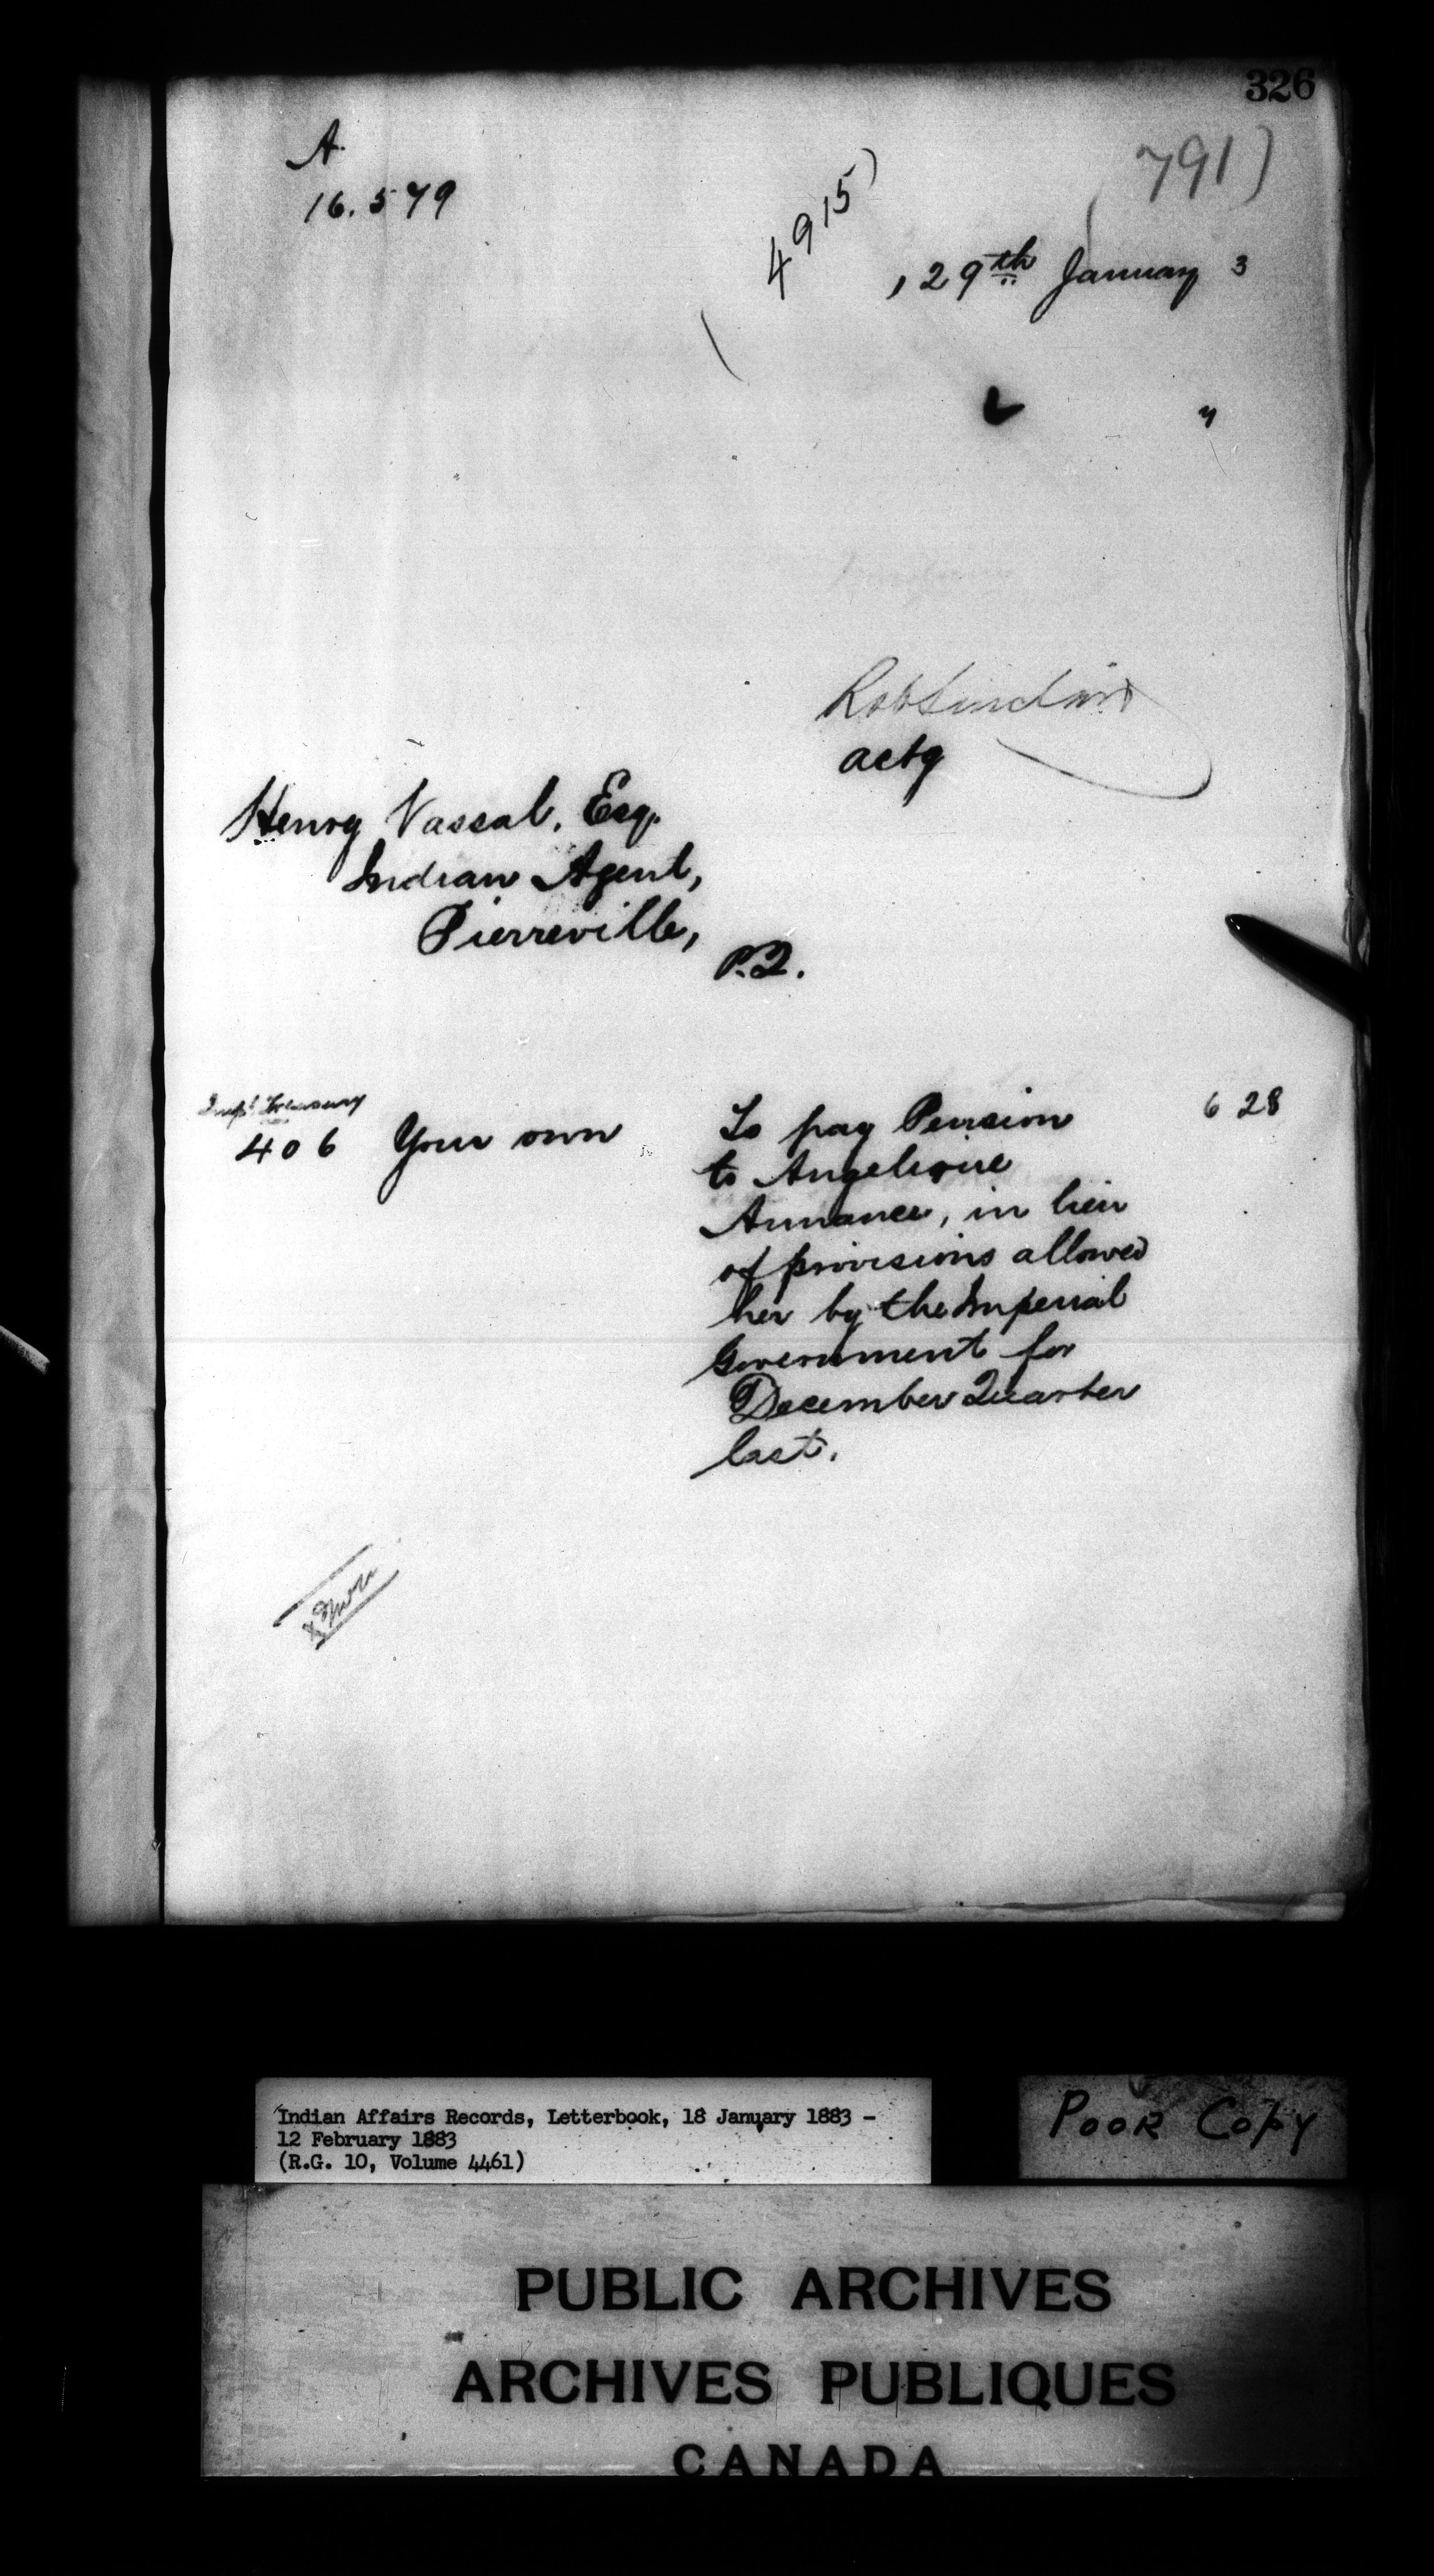 326
A.
16.579
(4915)
(791)
, 29th January 3
"
Rob Sinclair
actg
Henry Vassal, Esq.
Indian Agent,
Pierreville,
P.Q.
Treasury
406 Your own
To pay Pension 6 28
to Angelique
Annance, in lieu
of provisions allowed
her by the Imperial
Government for
December Quarter
last.
Indian Affairs Records, Letterbook, 18 January 1883 -
12 February 1883
(R.G. 10, Volume 4461)
POOR COPY
PUBLIC ARCHIVES
ARCHIVES PUBLIQUES
CANADA